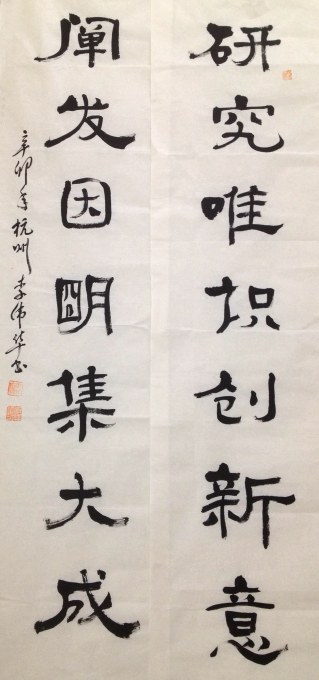 研究唯识创新意
阐发因明集大成
辛卯年杭州李伟华书